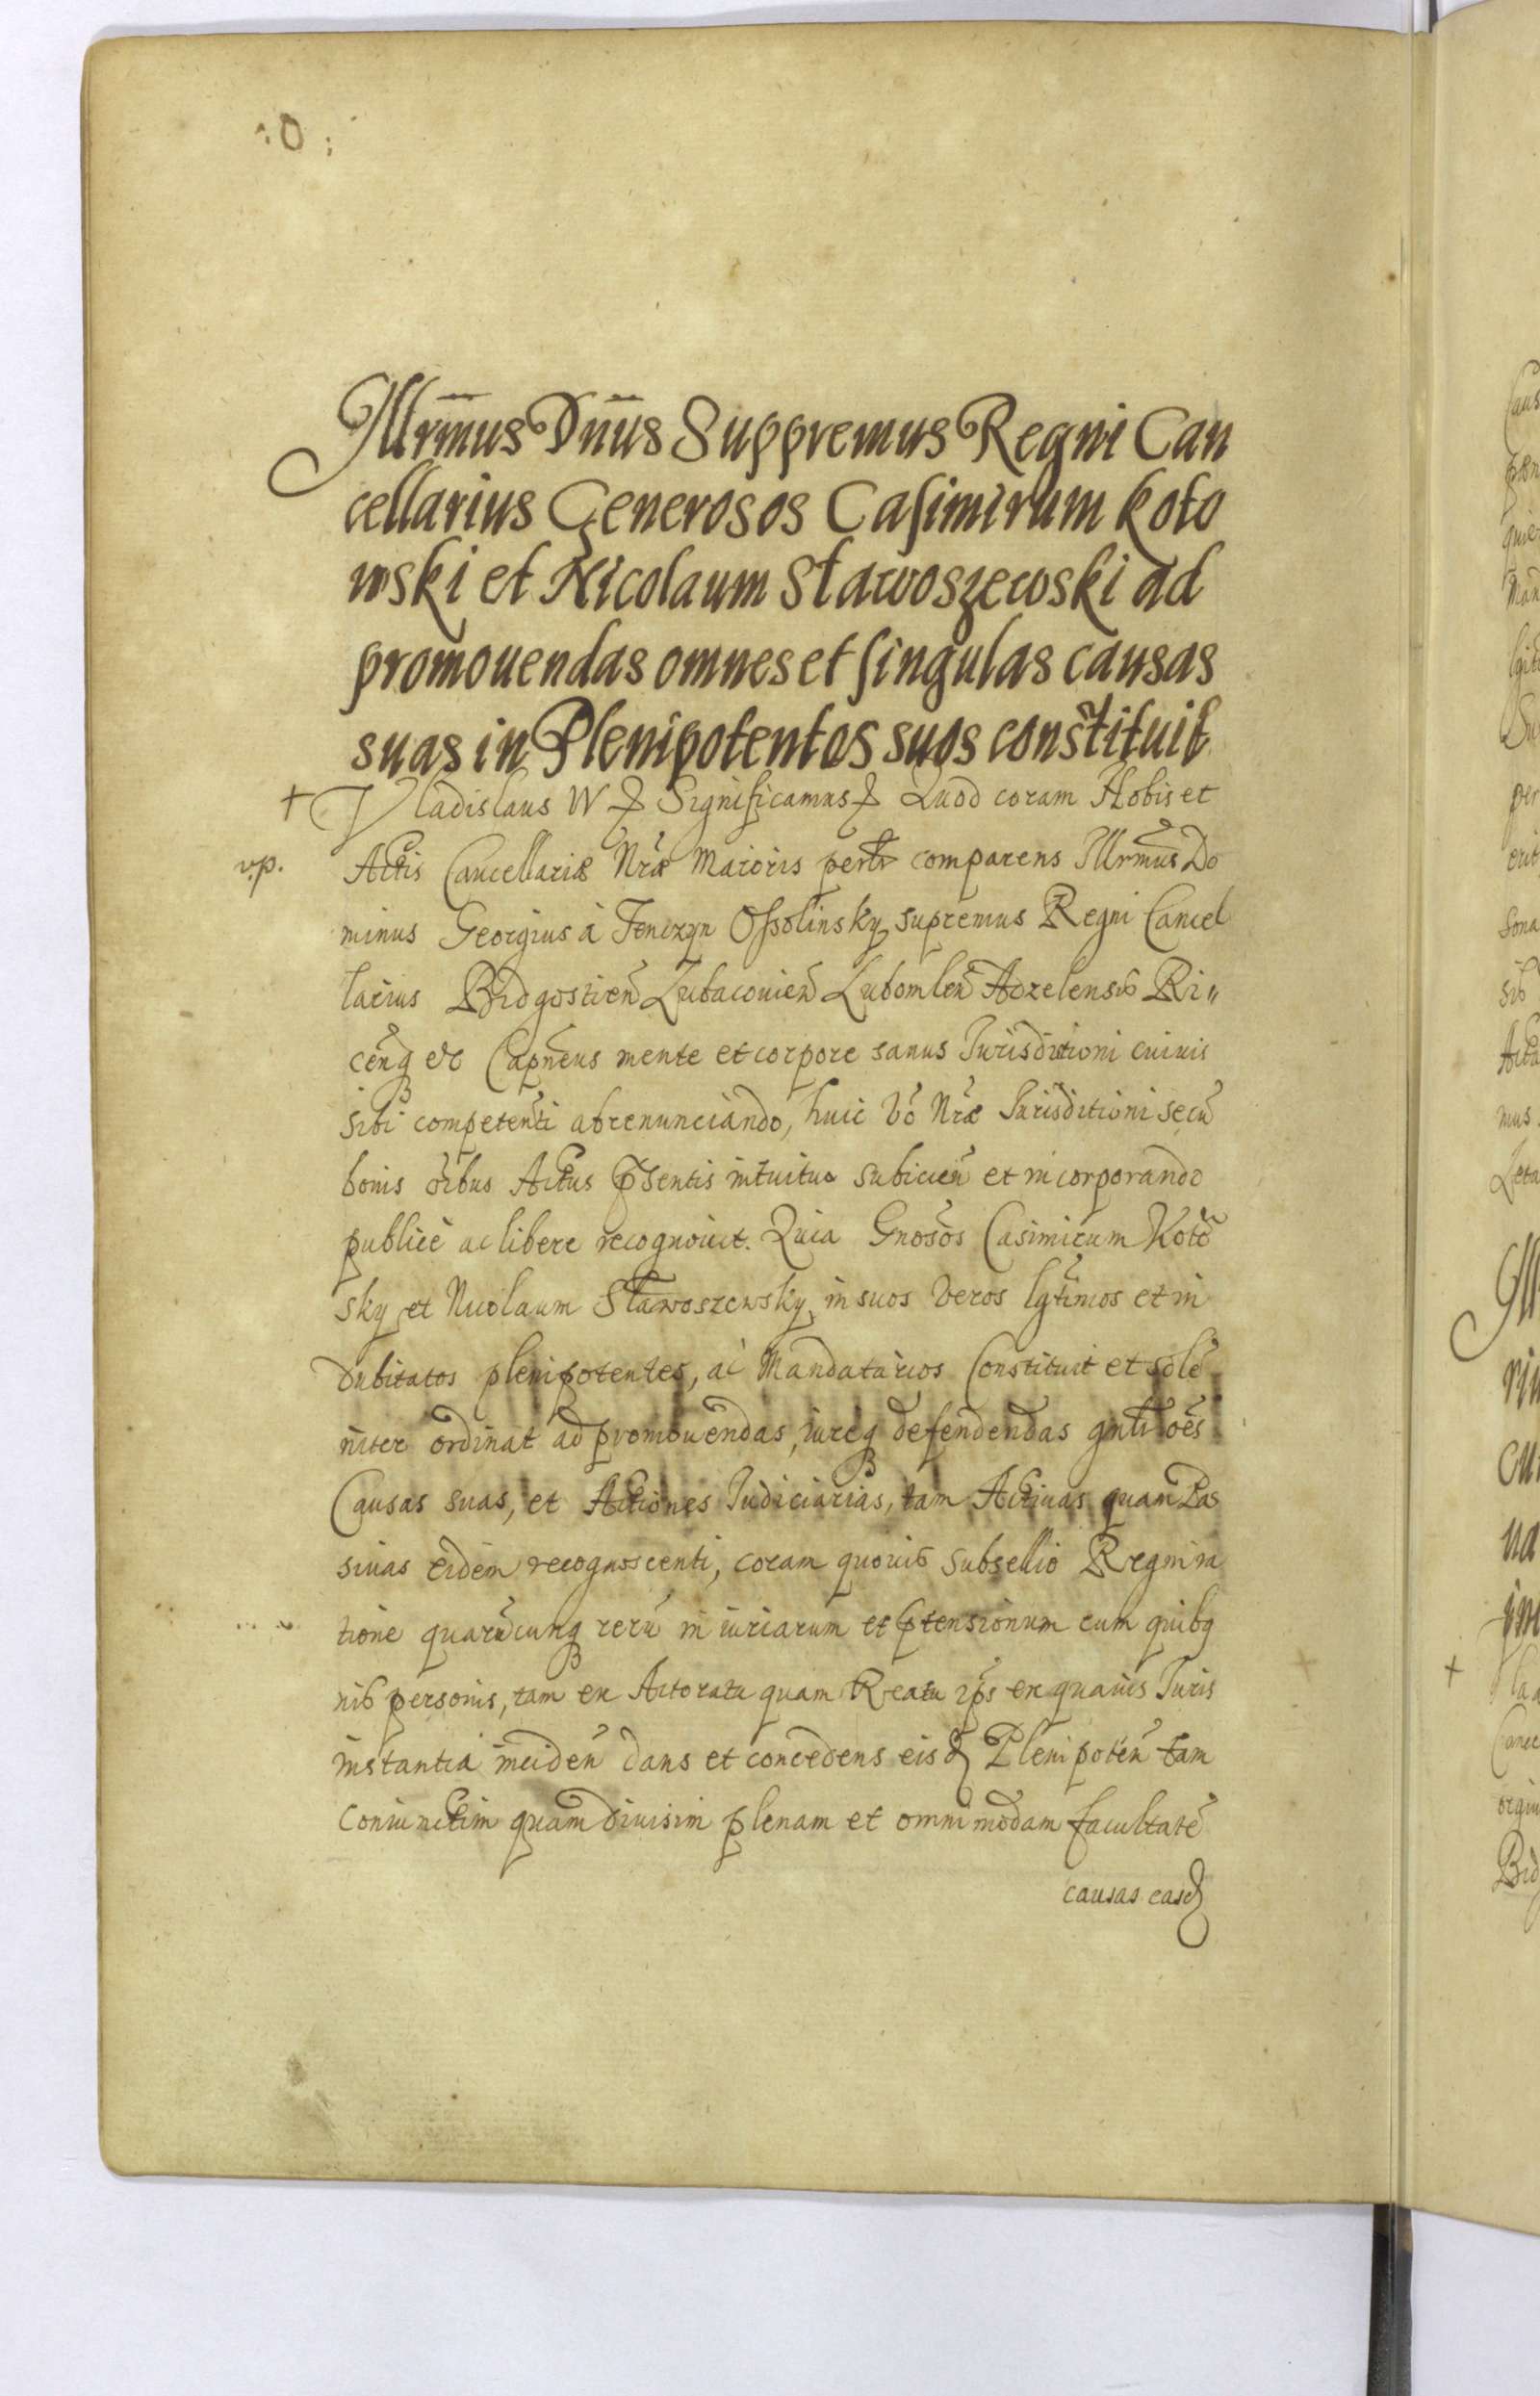 :O:
Illrm̄us Dn̄us Suppremus Regni Can
cellarius Generosos Casimirum Koto
wski et Nicolaum Stawoszewski ad
promouendas omnes et singulas causas
suas in Plenipotentes suos constituit
+ Vladislaus IV Significamus Quod coram Nobis et
v.p. Actis Cancellariæ Nr̃æ Maioris pertr comparens Illrmus Do
minus Georgius à Tenczyn Ossolinsky supremus Regni Cancel
larius Bidgostien̄ Lubaczouien̄ Lubomlen̄ Adzelensis Ri„
cen̄q etc Capn̄eus mente et corpore sanus Jurisditioni cuiuis
sibi competen̄ti abrenunciando, huic vo Nr̃æ Jurisditioni secū
bonis oĩbus Actus p̃sentis intuitu subicien̄ et incorporando
publice ac libere recognouit. Quia Gnosos Casimirum Koto
sky et Nicolaum Stawoszewsky in suos veros lgt̃imos et in
dubitatos plenipotentes, ac Mandatarios Constituit et sole
niter ordinat ad promouendas, iureq defendendas gnlr oẽs
Causas suas, et Actiones Judiciarias, tam Actiuas quam Pas
siuas eidem recognoscenti, coram quouis subsellio Regni ra
tione quarūcunq rerū iniuriarum et p̃tensionum cum quibq
uis personis, tam ex Actoratu quam Reatu ip̃s ex quauis Juris
instantia inciden̄ dans et concedens eisd Plenipoten̄ tam
coniunctim quam diuisim plenam et omnimodam facultatẽ
causas easd